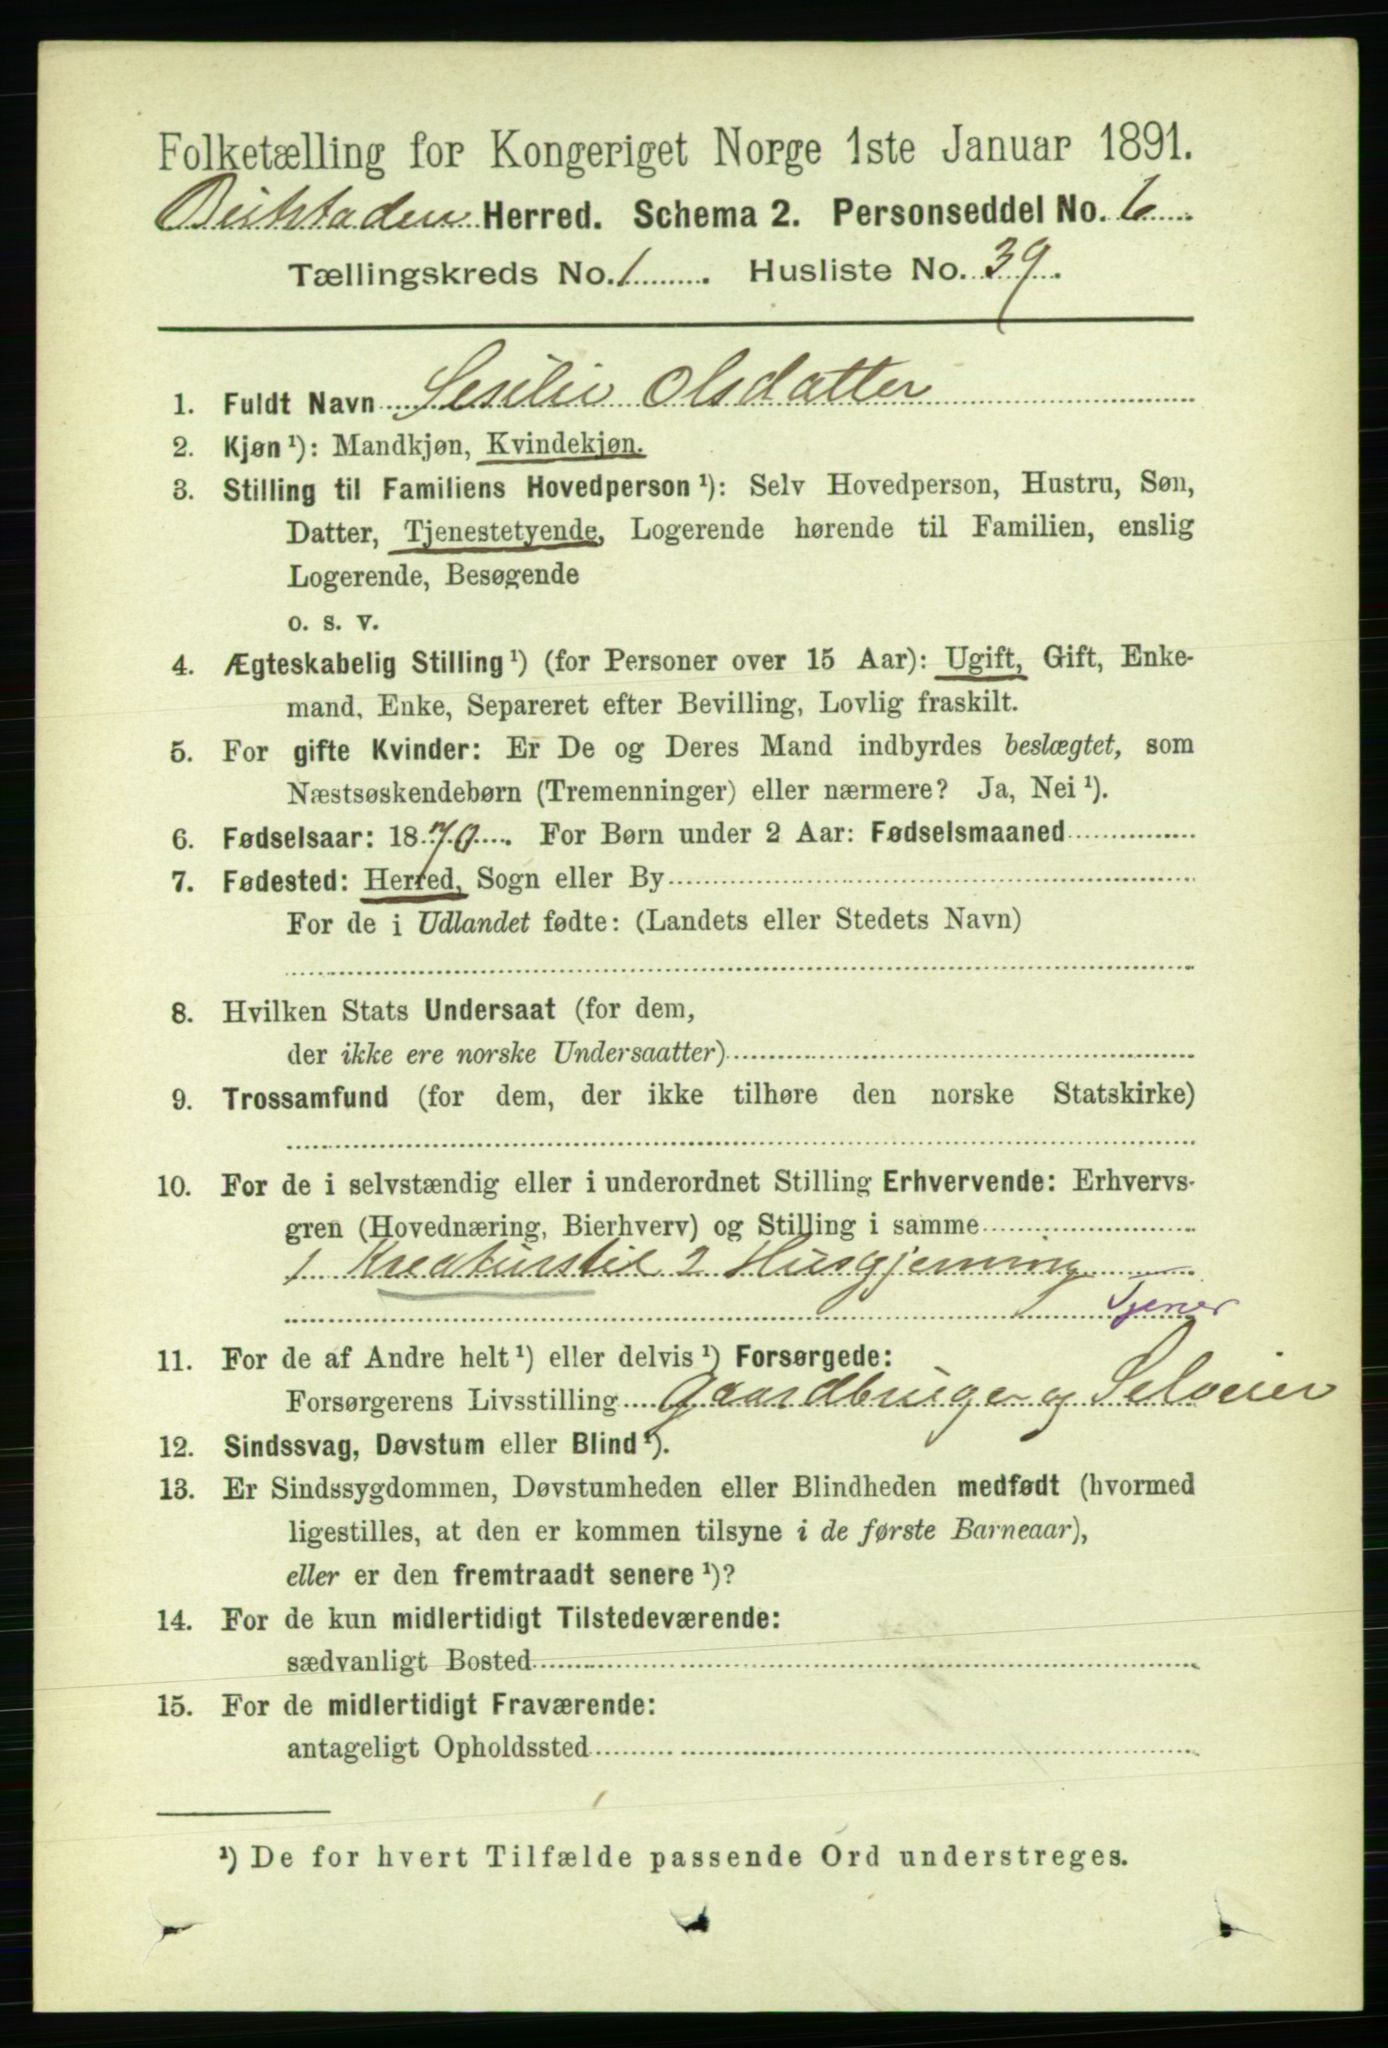 Folketælling for Kongeriget Norge 1ste Januar 1891.
Beitstaden Herred. Schema 2. Personseddel No. 6
Tællingskreds No. 1. Husliste No. 39.
1. Fuldt Navn Sesilie Olsdatter
2. Kjøn ¹): Mandkjøn, Kvindekjøn.
3. Stilling til Familiens Hovedperson ¹): Selv Hovedperson, Hustru, Søn,
Datter, Tjenestetyende, Logerende hørende til Familien, enslig
Logerende, Besøgende
o. s. v.
4. Ægteskabelig Stilling ¹) (for Personer over 15 Aar): Ugift, Gift, Enke-
mand, Enke, Separeret efter Bevilling, Lovlig fraskilt.
5. For gifte Kvinder: Er De og Deres Mand indbyrdes beslægtet, som
Næstsøskendebørn (Tremenninger) eller nærmere? Ja, Nei ¹).
6. Fødselsaar: 1870. For Børn under 2 Aar: Fødselsmaaned
7. Fødested: Herred, Sogn eller By
For de i Udlandet fødte: (Landets eller Stedets Navn)
8. Hvilken Stats Undersaat (for dem,
der ikke ere norske Undersaatter)
9. Trossamfund (for dem, der ikke tilhøre den norske Statskirke)
10. For de i selvstændig eller i underordnet Stilling Erhvervende: Erhvervs-
gren (Hovednæring, Bierhverv) og Stilling i samme
1 Kreaturstel 2 Husgjerning
Tjener
11. For de af Andre helt ¹) eller delvis ¹) Forsørgede:
Forsørgerens Livsstilling Gaardbruger og Selveier
12. Sindssvag, Døvstum eller Blind ¹).
13. Er Sindssygdommen, Døvstumheden eller Blindheden medfødt (hvormed
ligestilles, at den er kommen tilsyne i de første Barneaar),
eller er den fremtraadt senere ¹)?
14. For de kun midlertidigt Tilstedeværende:
sædvanligt Bosted
15. For de midlertidigt Fraværende:
antageligt Opholdssted
¹) De for hvert Tilfælde passende Ord understreges.